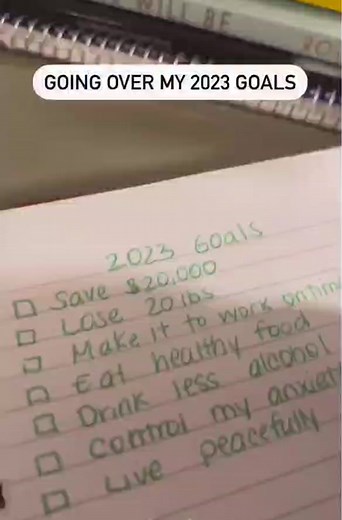 WILL BE
GOING OVER MY 2023 GOALS
2023 Goals
Save $20,000
Lose 20 lbs
Make it to work ontim
Eat healthy food
Drink less alcohol
Control my anxiet
Live peacefully